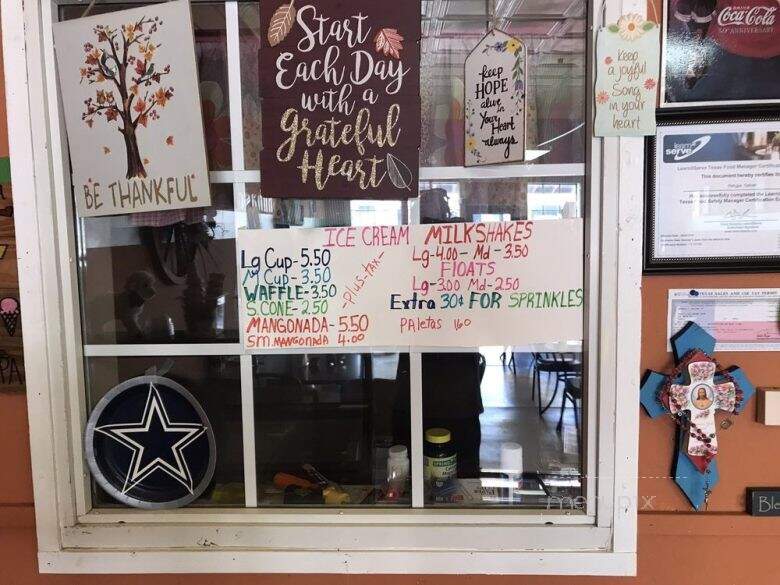 BE THANKFUL
Start
Each Day
with a
grateful
Heart
keep
HOPE
alive in
Your Heart
always
Keep
a joyful
Song
in your
heart
Coca-Cola
50th ANNIVERSARY
learn2
serve
Learn2Serve Texas Food Manager Certification
This document hereby certifies that
TEXAS SALES AND USE TAX PERMIT
ICE CREAM
Lg Cup-5.50
M Cup-3.50
WAFFLE-3.50
S.CONE-2.50
MANGONADA-5.50
SM.MANGONADA 4.00
-Plus-tax-
MILKSHAKES
Lg-4.00-Md-3.50
FlOATS
Lg-3.00 Md-2.50
Extra 30¢ FOR SPRINKLES
PAletas 1.60
PA
menupix
Ble